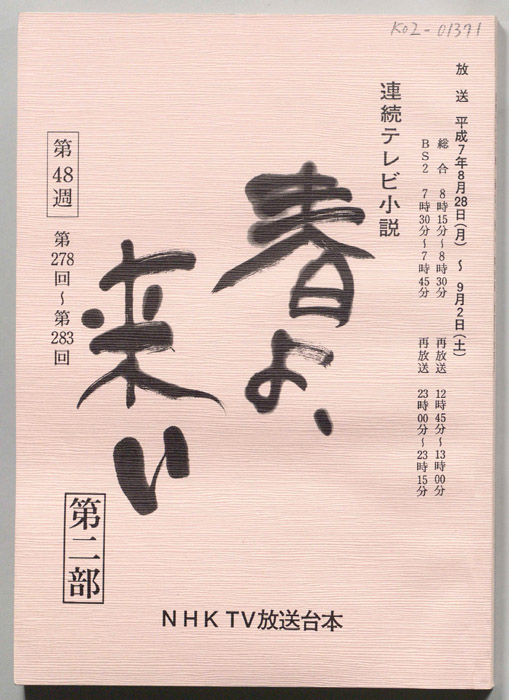 K02-01371
放送 平成7年8月28日(月) ~ 9月2日(土)
総合 8時15分~8時30分 再放送 12時45分~13時00分
BS2 7時30分~7時45分 再放送 23時00分~23時15分
連続テレビ小説
春よ、
来い
第二部
第48週
第278回~第283回
NHK TV放送台本